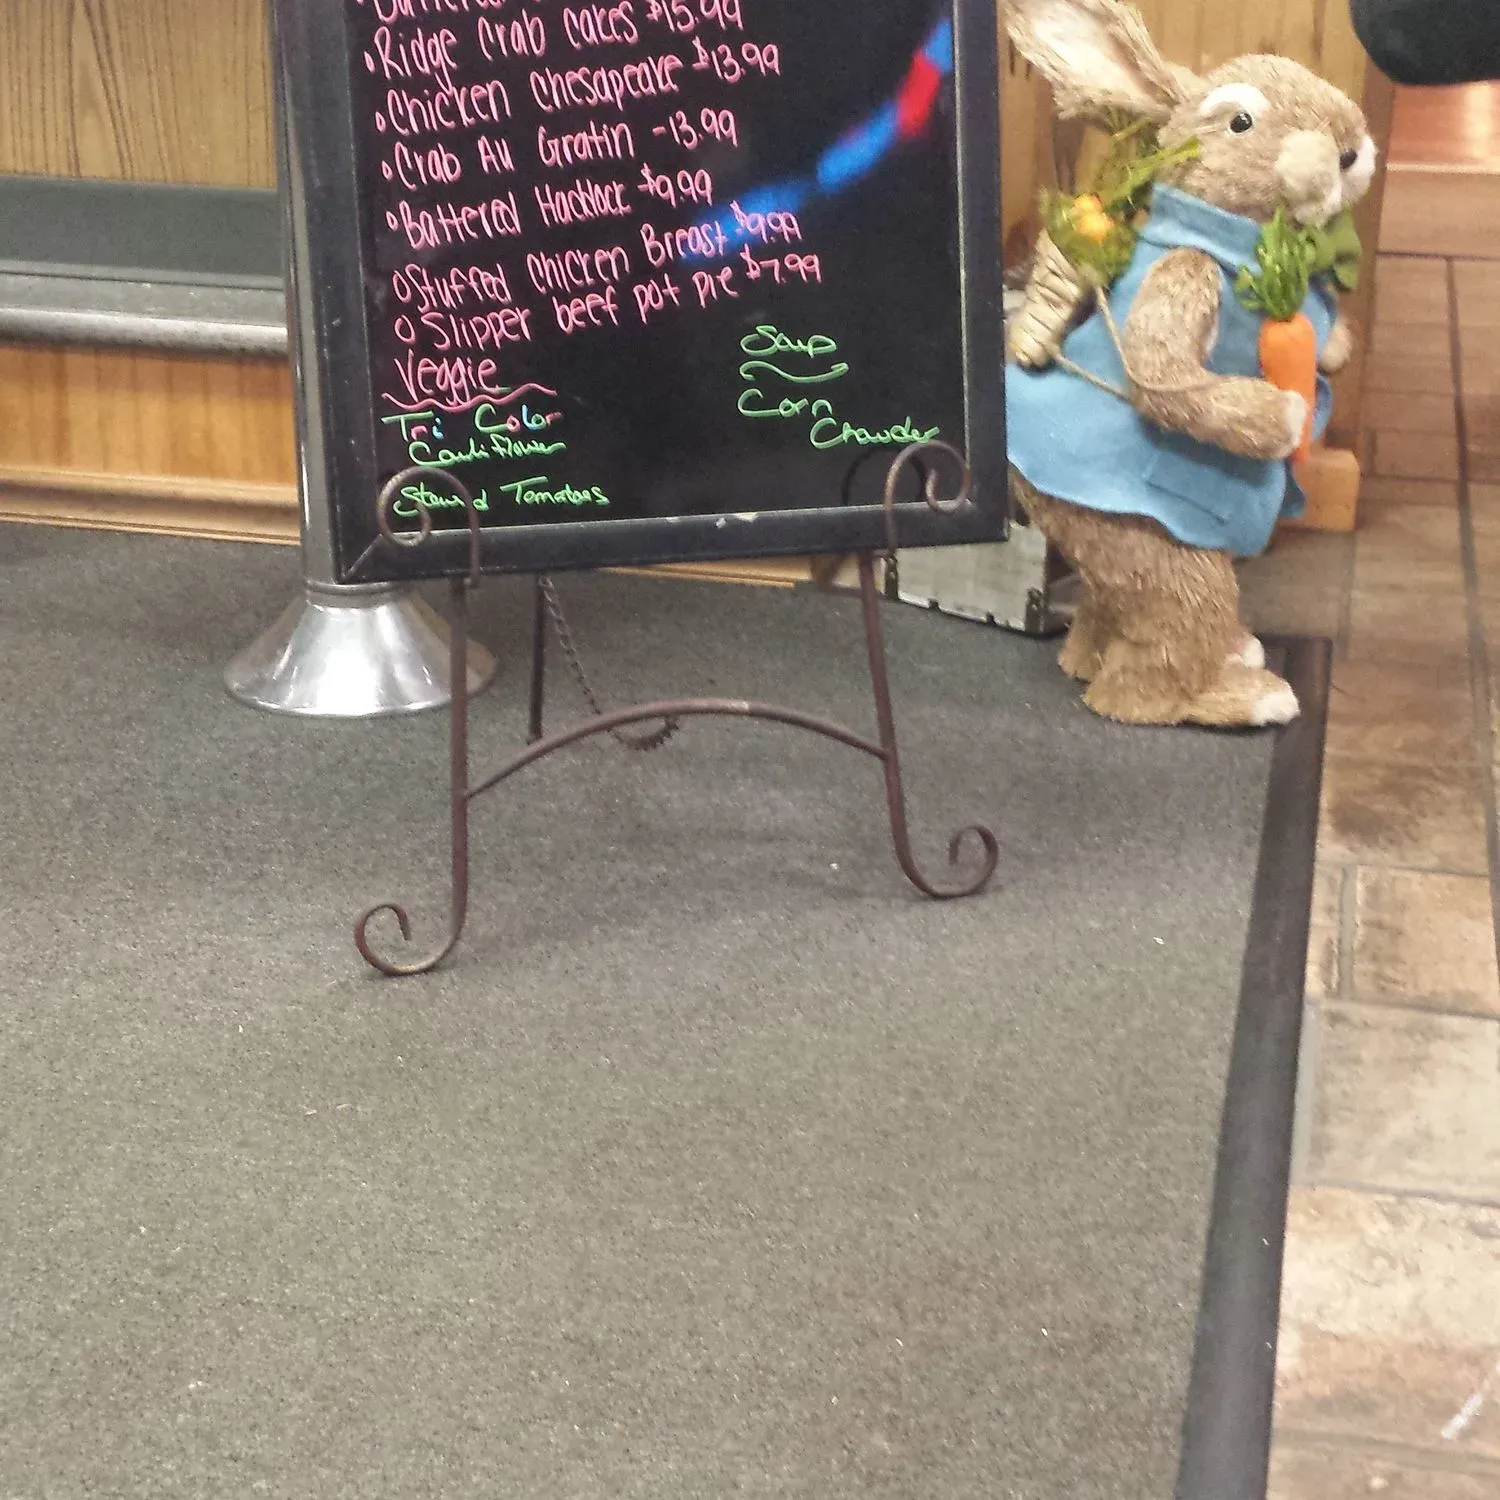 Battered
• Ridge Crab Cakes $15.99
• Chicken Chesapeake $13.99
• Crab Au Gratin -13.99
• Battered Haddock $9.99
• Stuffed Chicken Breast $9.99
• Slipper beef pot pie $7.99
Veggie
Tri Color
Cauliflower
Stewed Tomatoes
Soup
Corn
Chowder